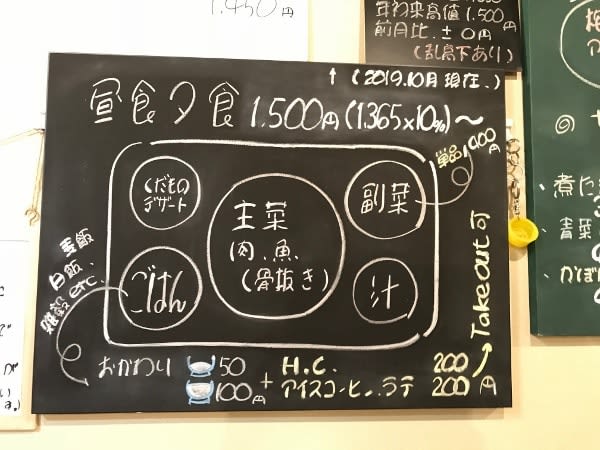 1.450円
年初来高値 1.500円
前月比. ±0円
(乱高下あり)
↑ (2019.10月 現在.)
昼食夕食 1.500円 (1.365×10%)〜
くだもの
デザート
主菜
肉. 魚
(骨抜き)
副菜
単品
ごはん
汁
麦飯
白飯.
雑穀 etc.
Take out 可
おかわり 50
100円
+ H.C. 200
アイスコーヒー. ラテ 200円
煮た
青菜
かぼ